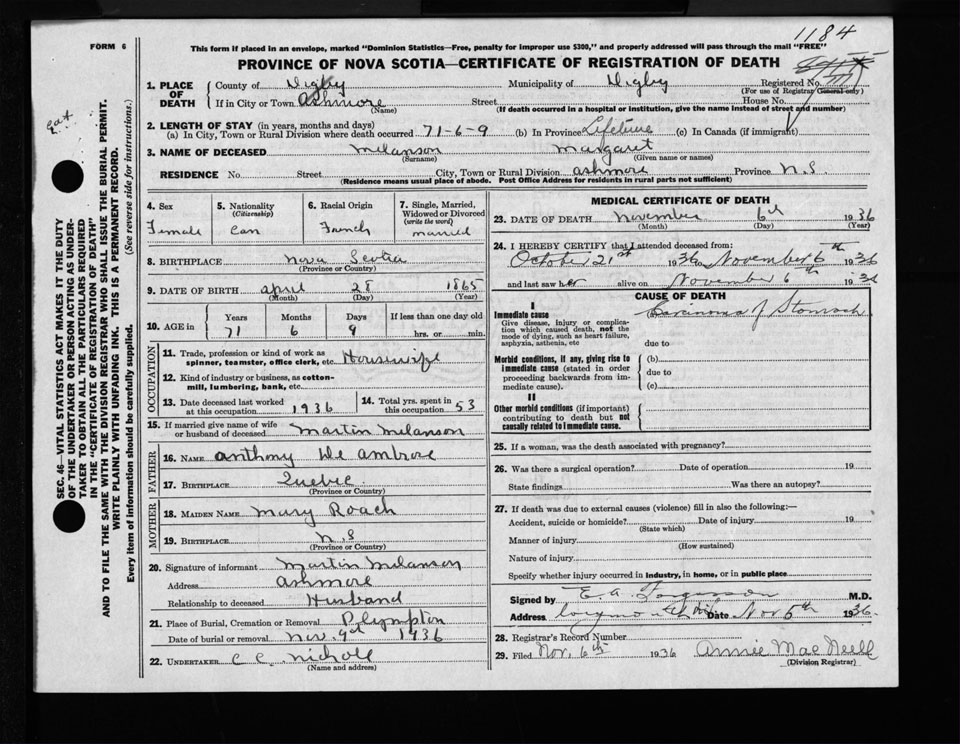 1184
FORM 6
This form if placed in an envelope, marked "Dominion Statistics—Free, penalty for improper use $300," and properly addressed will pass through the mail "FREE"
PROVINCE OF NOVA SCOTIA—CERTIFICATE OF REGISTRATION OF DEATH
1. PLACE OF DEATH
County of Digby Municipality of Digby Registered No.
(For use of Registrar General only)
If in City or Town Ashmore Street House No.
(Name) (If death occurred in a hospital or institution, give the name instead of street and number)
2. LENGTH OF STAY (in years, months and days)
(a) In City, Town or Rural Division where death occurred 71-6-9 (b) In Province Lifetime (c) In Canada (if immigrant)
3. NAME OF DECEASED Melanson Margaret
(Surname) (Given name or names)
RESIDENCE No. Street City, Town or Rural Division Ashmore Province N.S.
(Residence means usual place of abode. Post Office Address for residents in rural parts not sufficient)
4. Sex
Female
5. Nationality
(Citizenship)
Can
6. Racial Origin
French
7. Single, Married, Widowed or Divorced
(write the word)
married
8. BIRTHPLACE Nova Scotia
(Province or Country)
9. DATE OF BIRTH April 28 1865
(Month) (Day) (Year)
10. AGE in
Years Months Days If less than one day old
71 6 9 hrs. or min.
OCCUPATION
11. Trade, profession or kind of work as
spinner, teamster, office clerk, etc. Housewife
12. Kind of industry or business, as cotton-
mill, lumbering, bank, etc.
13. Date deceased last worked
at this occupation 1936
14. Total yrs. spent in
this occupation 53
15. If married give name of wife
or husband of deceased Martin Melanson
FATHER
16. NAME Anthony De Ambrose
17. BIRTHPLACE Quebec
(Province or Country)
MOTHER
18. MAIDEN NAME Mary Roach
19. BIRTHPLACE N.S
(Province or Country)
20. Signature of informant Martin Melanson
Address Ashmore
Relationship to deceased Husband
21. Place of Burial, Cremation or Removal Plympton
Date of burial or removal Nov. 9th 1936
22. UNDERTAKER C C Nicholl
(Name and address)
MEDICAL CERTIFICATE OF DEATH
23. DATE OF DEATH November 6th 1936
(Month) (Day) (Year)
24. I HEREBY CERTIFY that I attended deceased from:
October 21st 1936 to November 6th 1936
and last saw her alive on November 6th 1936
CAUSE OF DEATH
I
Immediate cause
Give disease, injury or complica-
tion which caused death, not the
mode of dying, such as heart failure,
asphyxia, asthenia, etc
(a) Carcinoma of Stomach
due to
Morbid conditions, if any, giving rise to
immediate cause (stated in order
proceeding backwards from im-
mediate cause).
(b)
due to
(c)
II
Other morbid conditions (if important)
contributing to death but not
causally related to immediate cause.
25. If a woman, was the death associated with pregnancy?
26. Was there a surgical operation? Date of operation 19
State findings Was there an autopsy?
27. If death was due to external causes (violence) fill in also the following:—
Accident, suicide or homicide? Date of injury 19
(State which)
Manner of injury
(How sustained)
Nature of injury
Specify whether injury occurred in industry, in home, or in public place
Signed by E. A. M.D.
Address Date Nov 5th 1936
28. Registrar's Record Number
29. Filed Nov. 6th 1936 Annie Mac Neill
(Division Registrar)
SEC. 46—VITAL STATISTICS ACT MAKES IT THE DUTY
OF THE UNDERTAKER OR PERSON ACTING AS UNDER-
TAKER TO OBTAIN ALL THE PARTICULARS REQUIRED
IN THE "CERTIFICATE OF REGISTRATION OF DEATH"
AND TO FILE THE SAME WITH THE DIVISION REGISTRAR WHO SHALL ISSUE THE BURIAL PERMIT.
WRITE PLAINLY WITH UNFADING INK. THIS IS A PERMANENT RECORD.
Every item of information should be carefully supplied. (See reverse side for instructions.)